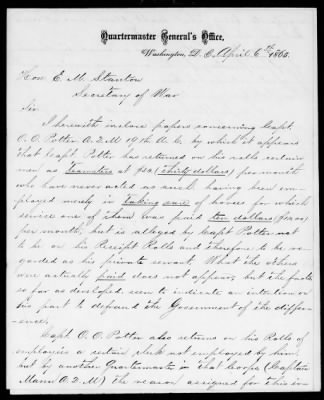 Quartermaster General's Office,
Washington, D. C. April 6th 1865.
Hon E. M. Stanton
Secretary of War
Sir
I herewith inclose papers concerning Capt.
O. O. Potter A. Q. M 19th A. C. by which it appears
that Capt Potter has returned on his rolls certain
men as Teamsters at $30 (Thirty dollars) per month
who have never acted as such having been em-
ployed merely in taking care of horses for which
service one of them was paid ten dollars ($10.00)
per month, but is alleged by Capt Potter not
to be on his Receipt Rolls and therefore to be re-
garded as his private servant. What the others
were actually paid does not appear, but the facts
so far as developed seem to indicate an intention on
his part to defraud the Government of the differ-
ence.
Capt. O. O. Potter also returns on his Rolls of
employees a certain clerk not employed by him,
but by another Quartermaster in that Corps (Captain
Mann A. Q. M) the reason assigned for this in-